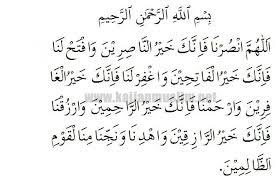 بِسْمِ اللَّهِ الرَّحْمٰنِ الرَّحِيْمِ
اَللّٰهُمَّ انْصُرْنَا فَاِنَّكَ خَيْرُ النَّاصِرِيْنَ وَافْتَحْ لَنَا
فَاِنَّكَ خَيْرُ الْفَاتِحِيْنَ وَاغْفِرْ لَنَا فَاِنَّكَ خَيْرُ الْغَا
فِرِيْنَ وَارْحَمْنَا فَاِنَّكَ خَيْرُ الرَّاحِمِيْنَ وَارْزُقْنَا
فَاِنَّكَ خَيْرُ الرَّازِقِيْنَ وَاهْدِنَا وَنَجِّنَا مِنَ الْقَوْمِ
الظَّالِمِيْنَ.